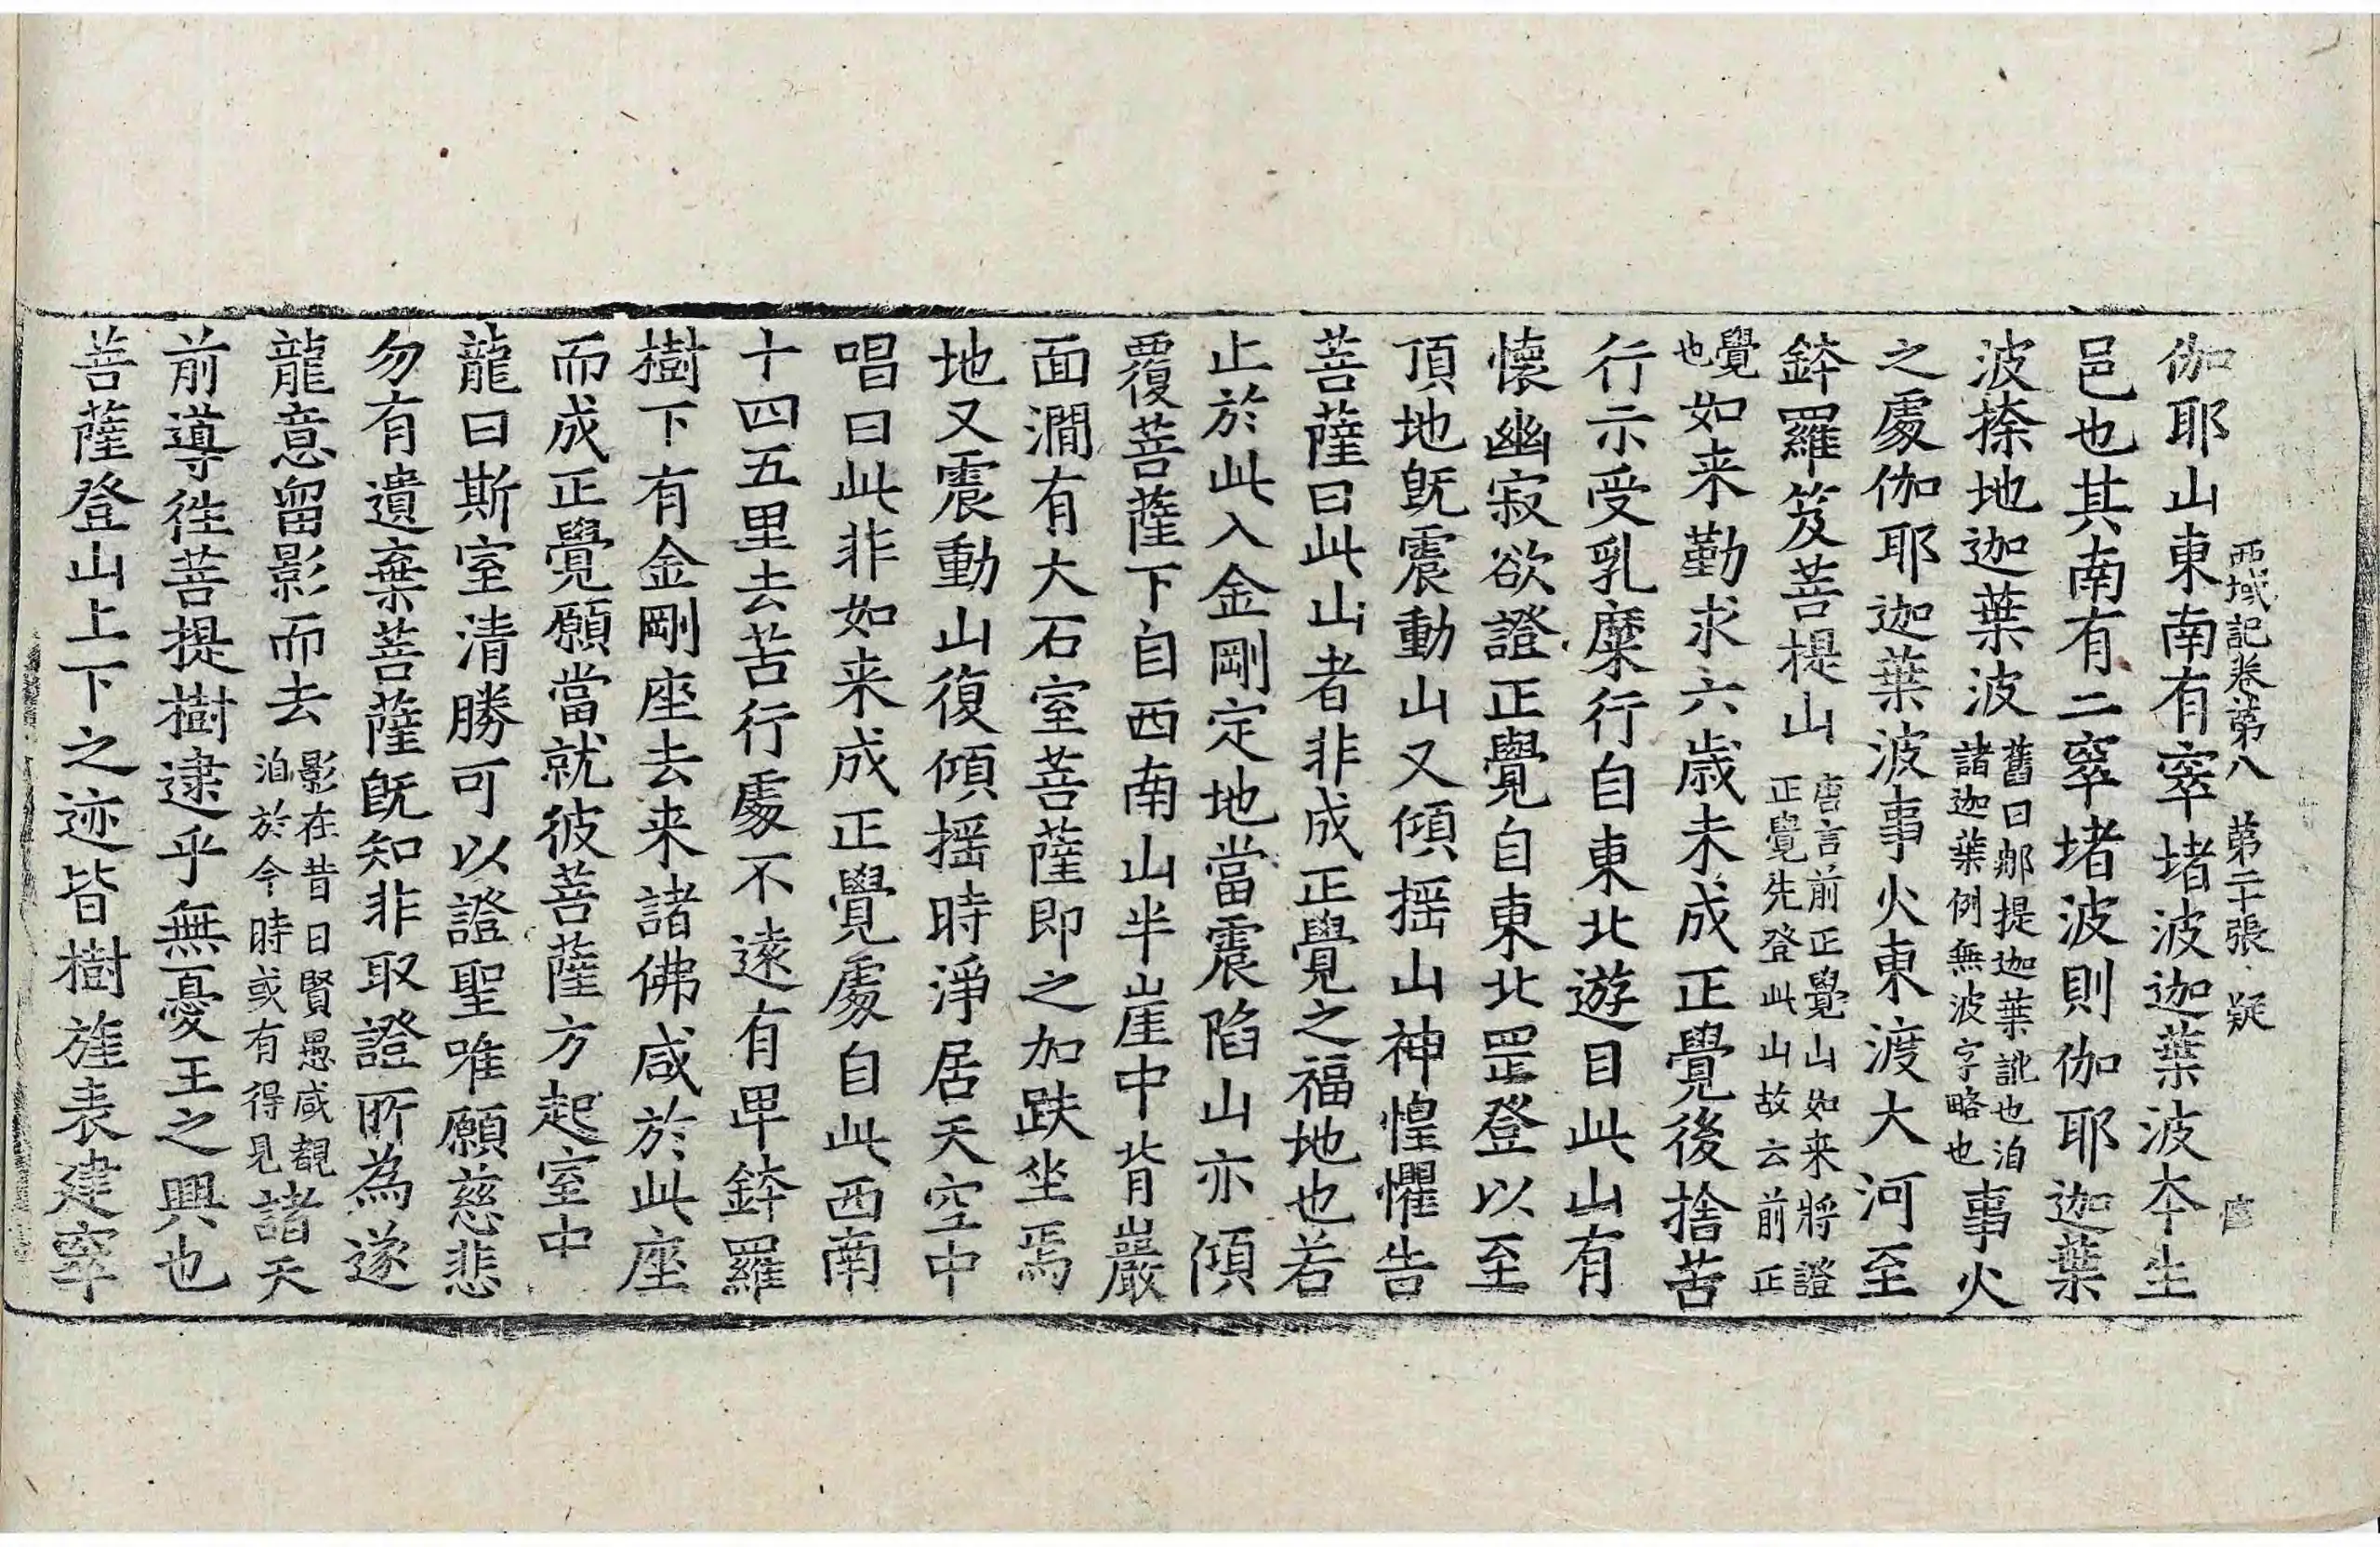 西域記卷第八　第二十張　疑
伽耶山東南有窣堵波迦葉波本生
邑也其南有二窣堵波則伽耶迦葉
波捺地迦葉波舊曰那提迦葉訛也洎諸迦葉例無波字略也事火
之處伽耶迦葉波事火東渡大河至
鉢羅笈菩提山唐言前正覺山如来將證正覺先登此山故云前正
覺也如来勤求六歲未成正覺後捨苦
行示受乳糜行自東北遊目此山有
懷幽寂欲證正覺自東北罡登以至
頂地旣震動山又傾摇山神惶懼告
菩薩曰此山者非成正覺之福地也若
止於此入金剛定地當震陷山亦傾
覆菩薩下自西南山半崖中背巖
面澗有大石室菩薩即之加趺坐焉
地又震動山復傾摇時淨居天空中
唱曰此非如来成正覺處自此西南
十四五里去苦行處不遠有卑鉢羅
樹下有金剛座去来諸佛咸於此座
而成正覺願當就彼菩薩方起室中
龍曰斯室清勝可以證聖唯願慈悲
勿有遺棄菩薩旣知非取證所為遂
龍意留影而去影在昔日賢愚咸覩洎於今時或有得見諸天
前導徃菩提樹逮乎無憂王之興也
菩薩登山上下之迹皆樹旌表建窣